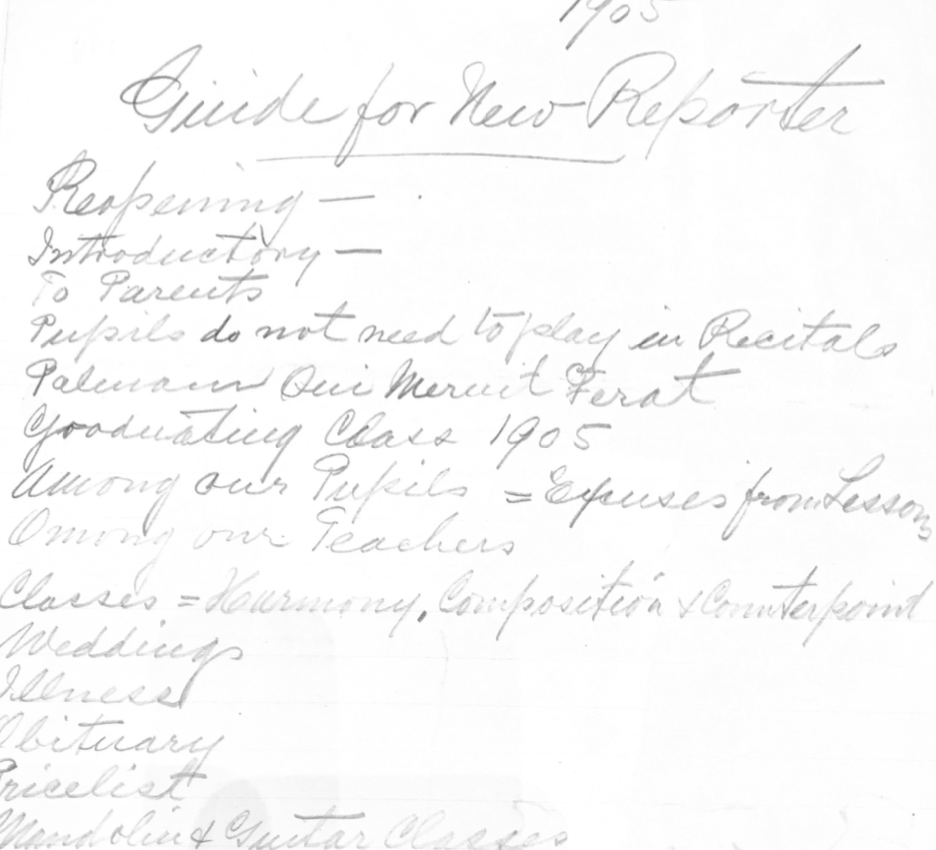 1905
Guide for New Reporter
Reopening —
Introductory —
To Parents
Pupils do not need to play in Recitals
Palmam Qui Meruit Ferat
Graduating Class 1905
Among our Pupils = Expenses from Lessons
Among our Teachers
Classes = Harmony, Composition & Counterpoint
Weddings
Illness
Obituary
Pricelist
Mandolin & Guitar Classes